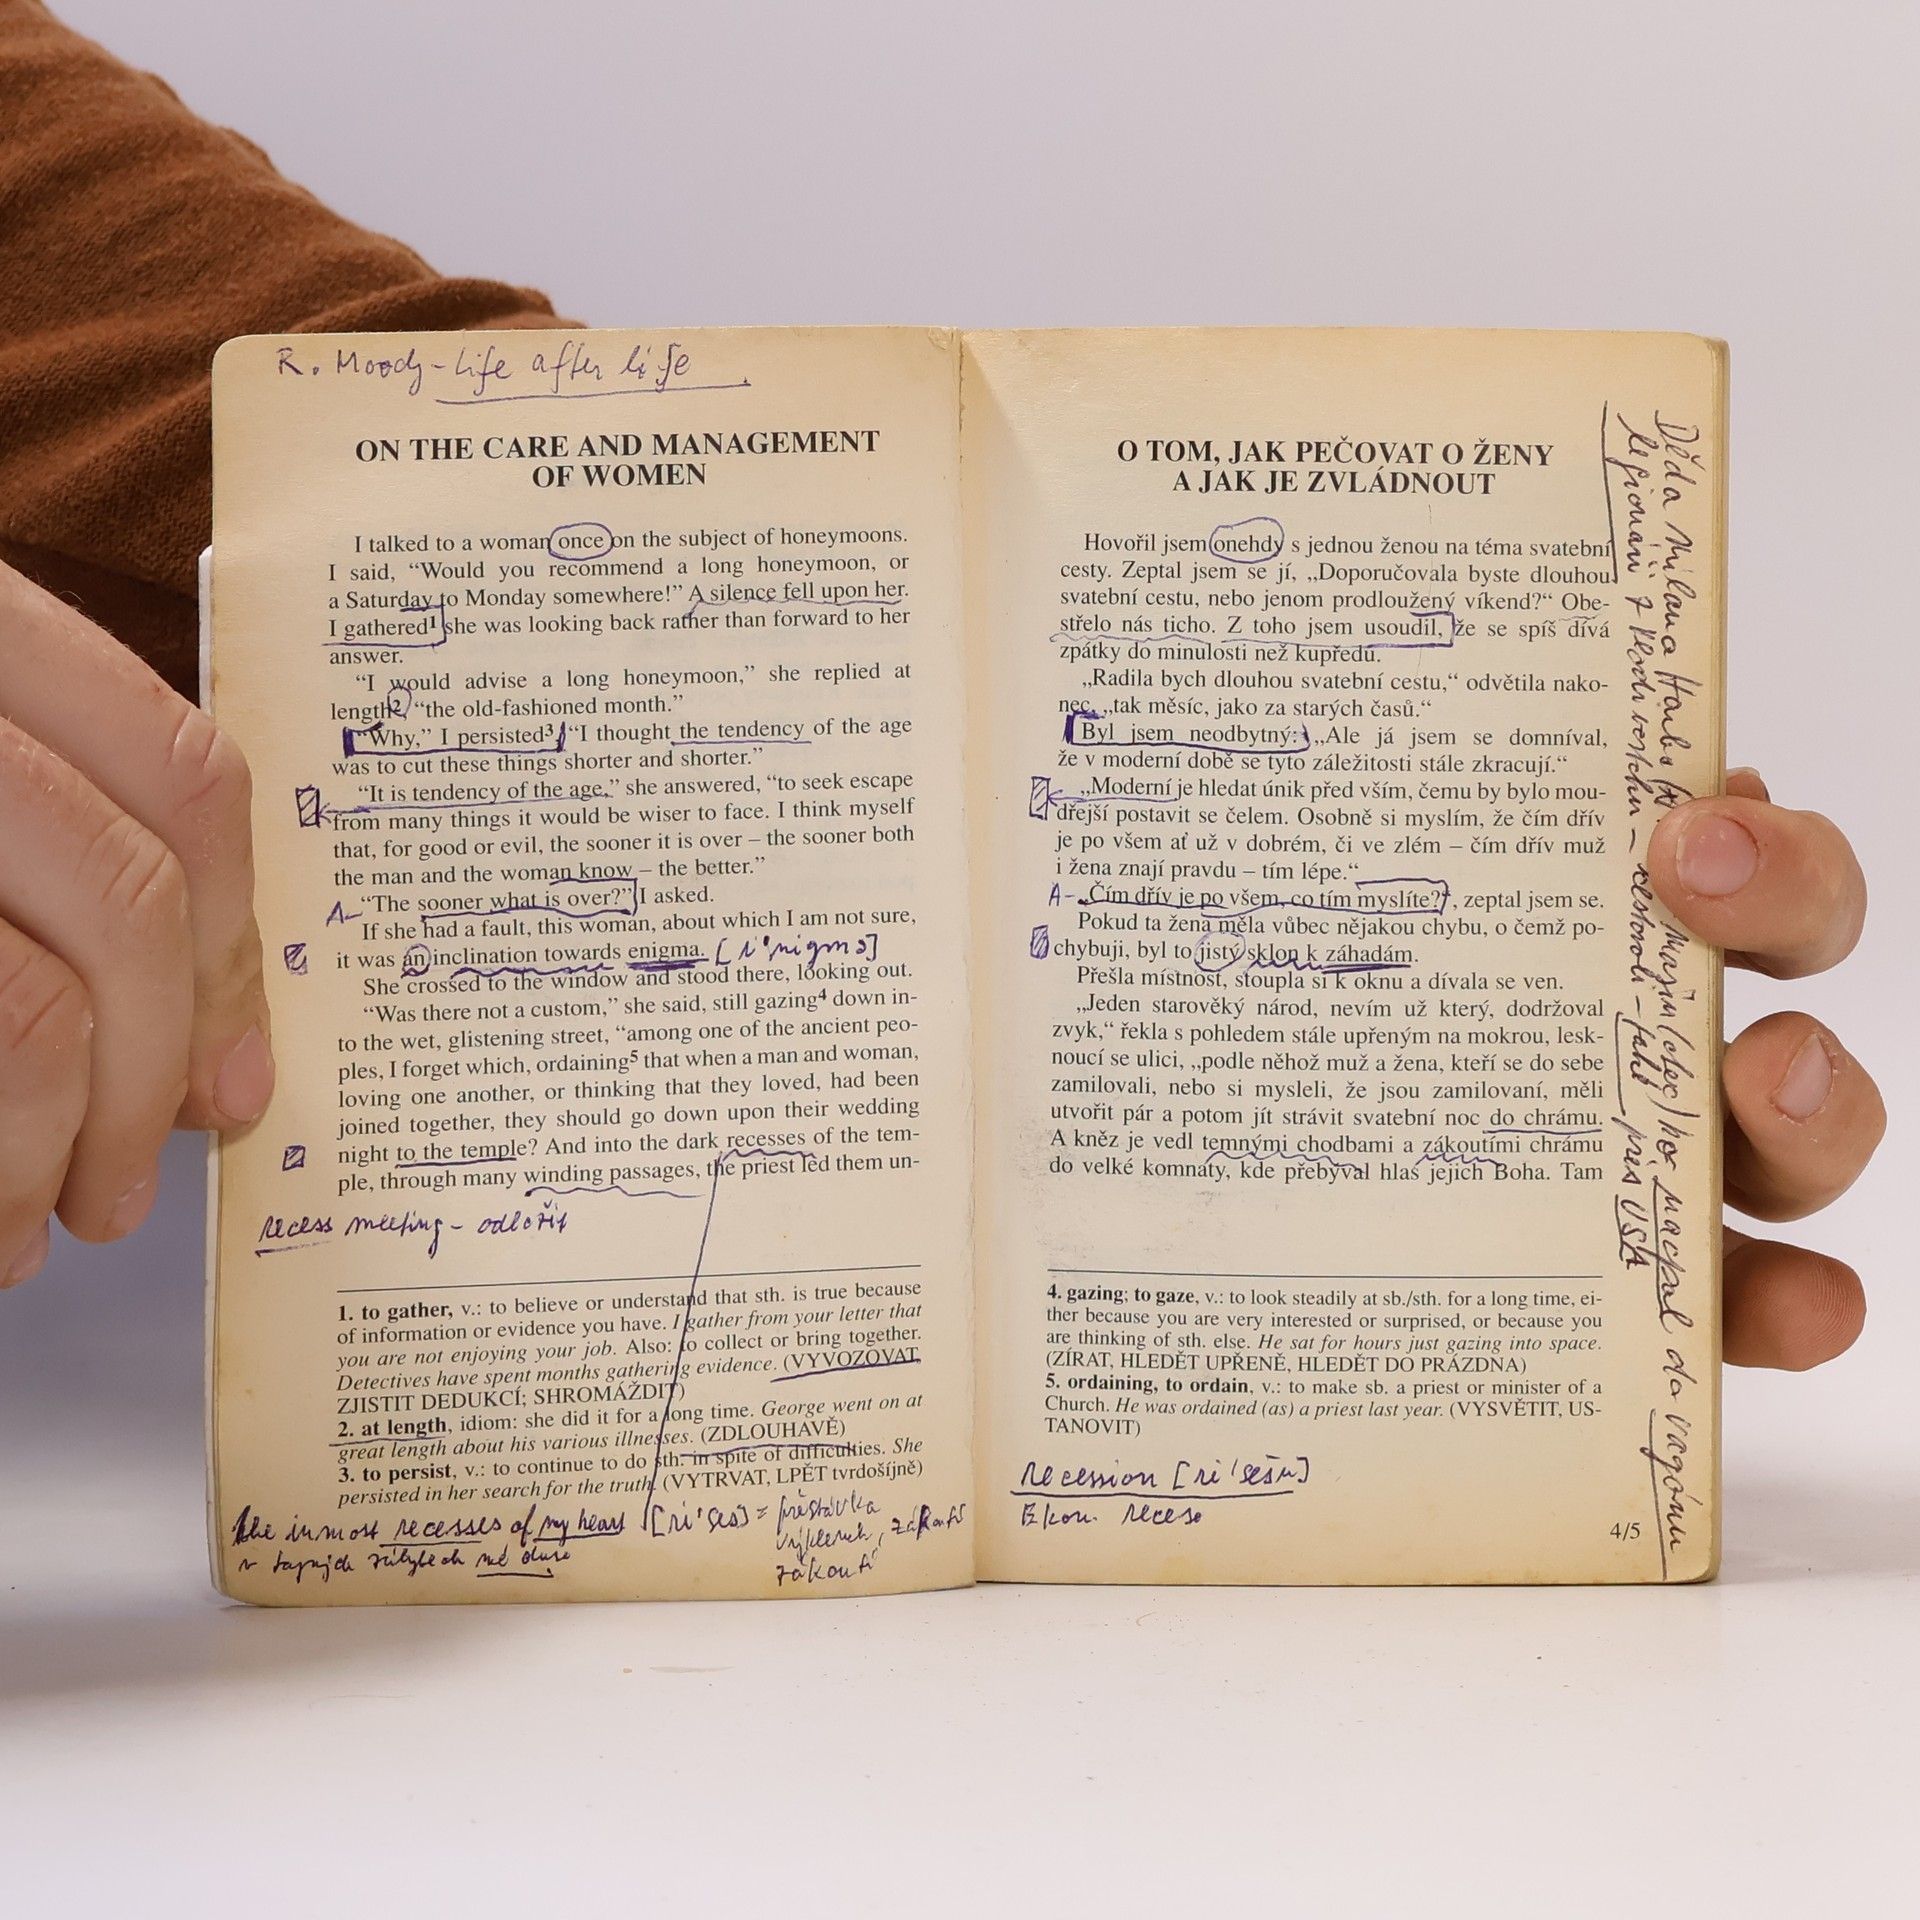 R. Moody - Life after life
ON THE CARE AND MANAGEMENT
OF WOMEN
I talked to a woman once on the subject of honeymoons.
I said, “Would you recommend a long honeymoon, or
a Saturday to Monday somewhere!” A silence fell upon her.
I gathered¹ she was looking back rather than forward to her
answer.
“I would advise a long honeymoon,” she replied at
length², “the old-fashioned month.”
“Why,” I persisted³, “I thought the tendency of the age
was to cut these things shorter and shorter.”
“It is tendency of the age,” she answered, “to seek escape
from many things it would be wiser to face. I think myself
that, for good or evil, the sooner it is over – the sooner both
the man and the woman know – the better.”
A- “The sooner what is over?” I asked.
If she had a fault, this woman, about which I am not sure,
it was an inclination towards enigma. [i'nigmə]
She crossed to the window and stood there, looking out.
“Was there not a custom,” she said, still gazing⁴ down in-
to the wet, glistening street, “among one of the ancient peo-
ples, I forget which, ordaining⁵ that when a man and woman,
loving one another, or thinking that they loved, had been
joined together, they should go down upon their wedding
night to the temple? And into the dark recesses of the tem-
ple, through many winding passages, the priest led them un-
recess meeting - odložit
1. to gather, v.: to believe or understand that sth. is true because
of information or evidence you have. I gather from your letter that
you are not enjoying your job. Also: to collect or bring together.
Detectives have spent months gathering evidence. (VYVOZOVAT,
ZJISTIT DEDUKCÍ; SHROMÁŽDIT)
2. at length, idiom: she did it for a long time. George went on at
great length about his various illnesses. (ZDLOUHAVĚ)
3. to persist, v.: to continue to do sth. in spite of difficulties. She
persisted in her search for the truth. (VYTRVAT, LPĚT tvrdošíjně)
the inmost recesses of my heart [ri'ses] = přestávka
výklenek, zákoutí
v tajných záhybech mé duše
zákoutí
O TOM, JAK PEČOVAT O ŽENY
A JAK JE ZVLÁDNOUT
Hovořil jsem onehdy s jednou ženou na téma svatební
cesty. Zeptal jsem se jí, „Doporučovala byste dlouhou
svatební cestu, nebo jenom prodloužený víkend?“ Obe-
střelo nás ticho. Z toho jsem usoudil, že se spíš dívá
zpátky do minulosti než kupředu.
„Radila bych dlouhou svatební cestu,“ odvětila nako-
nec, „tak měsíc, jako za starých časů.“
Byl jsem neodbytný: „Ale já jsem se domníval,
že v moderní době se tyto záležitosti stále zkracují.“
„Moderní je hledat únik před vším, čemu by bylo mou-
dřejší postavit se čelem. Osobně si myslím, že čím dřív
je po všem ať už v dobrém, či ve zlém – čím dřív muž
i žena znají pravdu – tím lépe.“
A- „Čím dřív je po všem, co tím myslíte?“, zeptal jsem se.
Pokud ta žena měla vůbec nějakou chybu, o čemž po-
chybuji, byl to jistý sklon k záhadám.
Přešla místnost, stoupla si k oknu a dívala se ven.
„Jeden starověký národ, nevím už který, dodržoval
zvyk,“ řekla s pohledem stále upřeným na mokrou, lesk-
noucí se ulici, „podle něhož muž a žena, kteří se do sebe
zamilovali, nebo si mysleli, že jsou zamilovaní, měli
utvořit pár a potom jít strávit svatební noc do chrámu.
A kněz je vedl temnými chodbami a zákoutími chrámu
do velké komnaty, kde přebýval hlas jejich Boha. Tam
4. gazing; to gaze, v.: to look steadily at sb./sth. for a long time, ei-
ther because you are very interested or surprised, or because you
are thinking of sth. else. He sat for hours just gazing into space.
(ZÍRAT, HLEDĚT UPŘENĚ, HLEDĚT DO PRÁZDNA)
5. ordaining, to ordain, v.: to make sb. a priest or minister of a
Church. He was ordained (as) a priest last year. (VYSVĚTIT, US-
TANOVIT)
recession [ri'sešn]
Ekon. recese
4/5
Děda Milana (otec) ho nacpal do vagónu
legionáři z Vladivostoku - - také přes USA